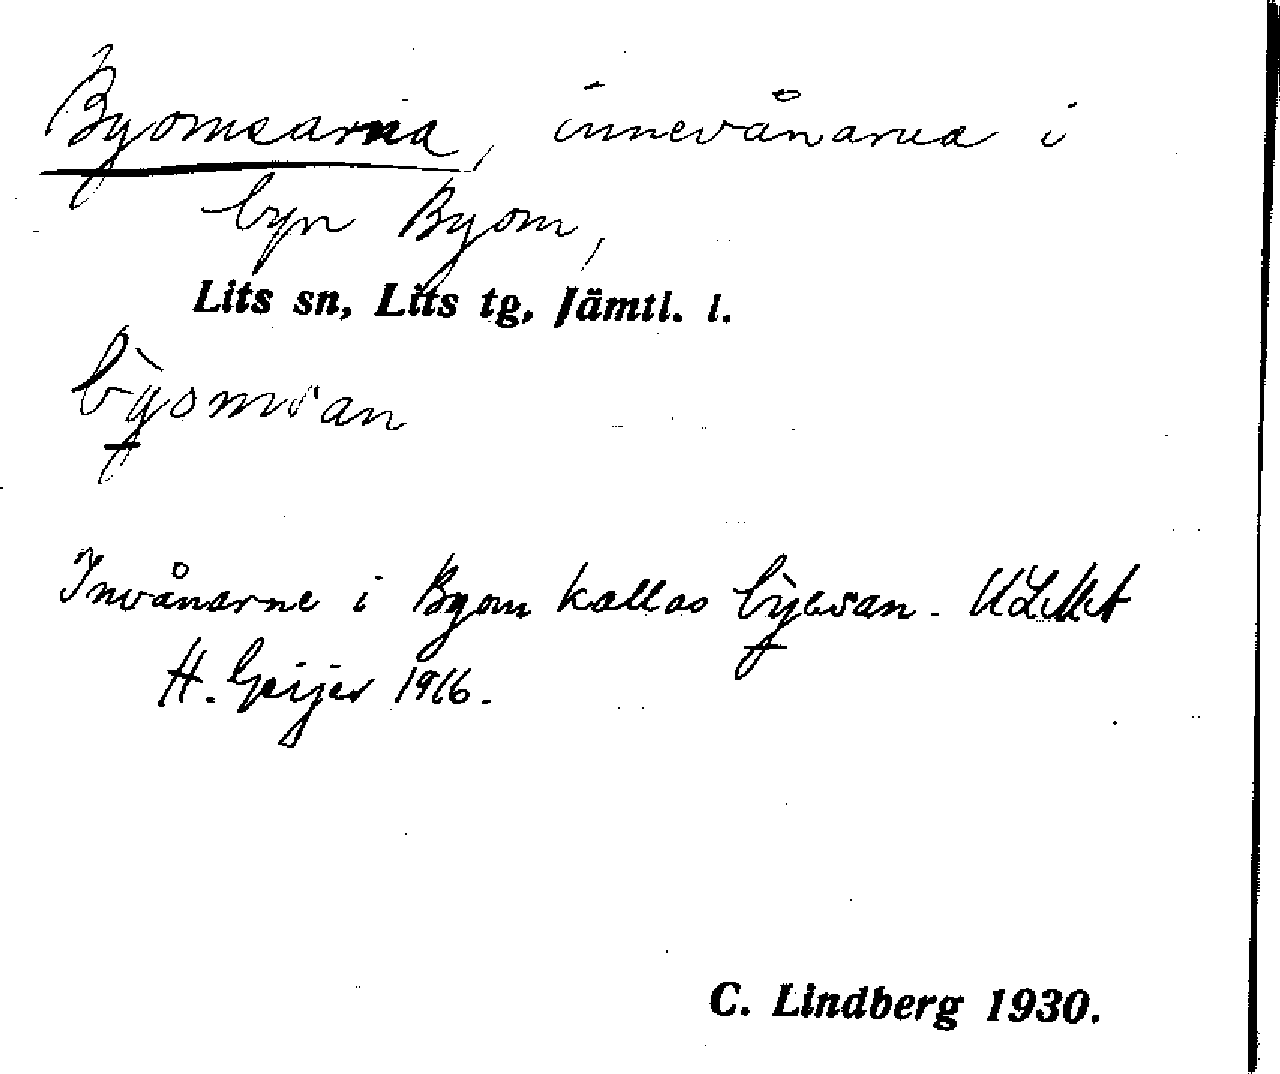 Byomsarna, innevånarna i
byn Byom,
Lits sn, Lits tg, Jämtl. l.
bỳomsan
Invånarne i Byom kallas bỳesan. ULMA
H. Geijer 1916.
C. Lindberg 1930.